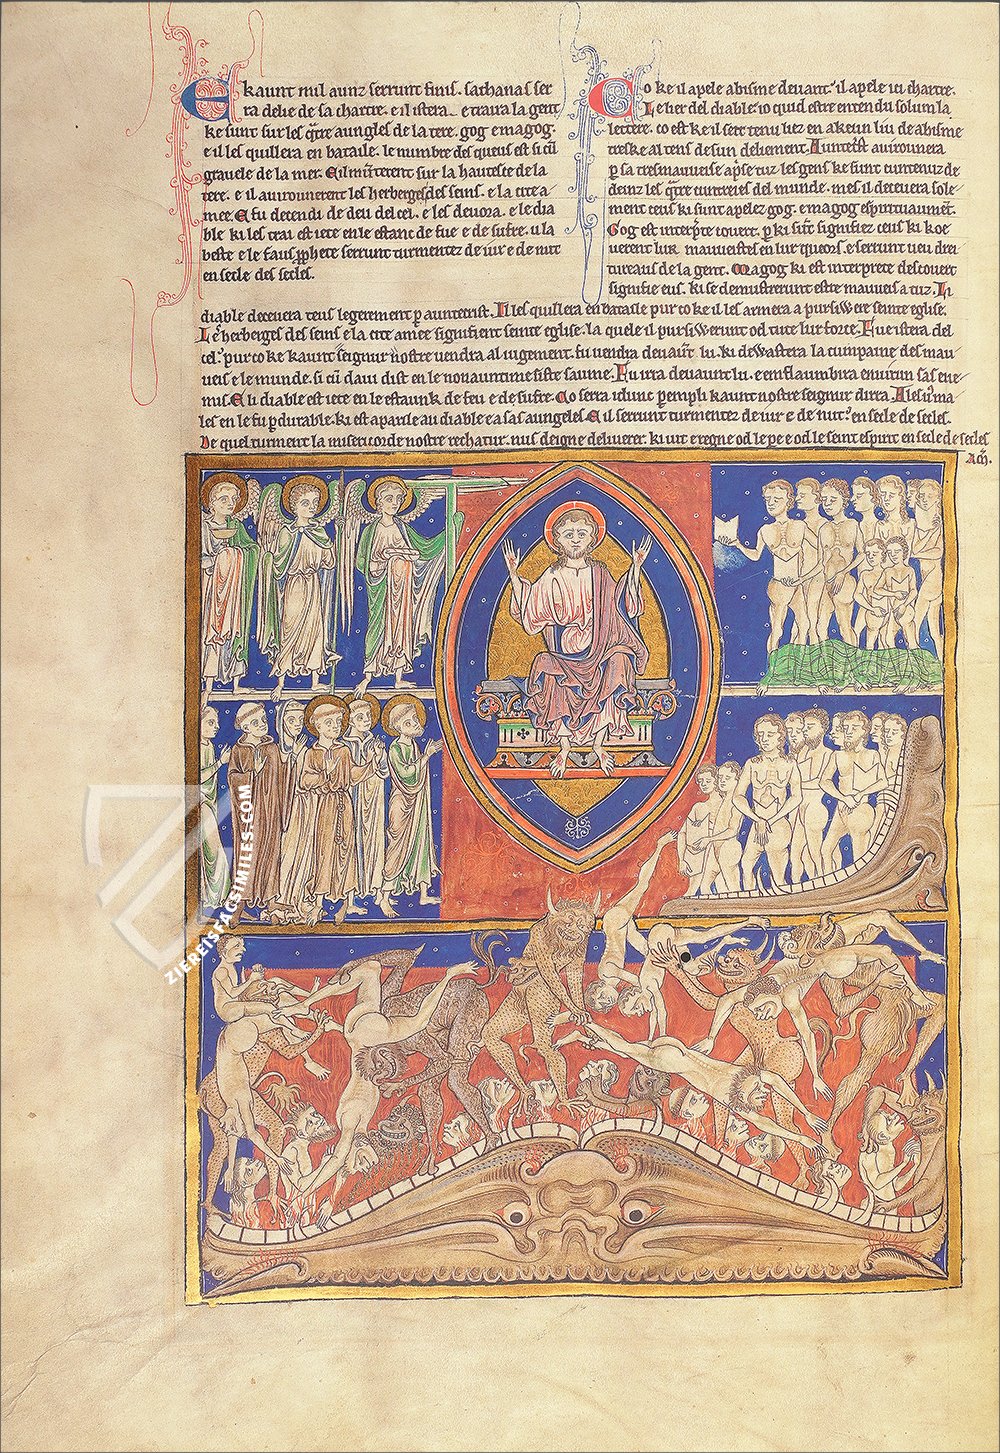 E kaunt mil aunz serrunt finis. sathanas ser
ra delie de sa chartre. e il istera. e traira la gent
ke sunt sur les q̃tre aungles de la tere. gog e magog.
e il les quillera en bataile. le numbre des queus est si cũ
gravele de la mer. E il mũterent sur la hautesce de la
tere. e il avirunerent les herberges des seins. e la cite a-
mee. E fu decendi de deu del cel. e les devora. e le dia
ble ki les trai est iete en le estanc de fue e de sufre. u la
beste e le faus p̱phete serrunt turmentez de iur e de nuit
en secle des secles.
Co ke il apele abisme devant. il apele ici chartre.
Le her del diable. io quid estre entendu solum la
lettere. co est ke il sere tenu liez en akeun liu de abisme
treske al tens de sun deliement. Auntec̃st avirounera
p̱ sa tresmauveise ap̃se tuz les gens ke sunt cuntenuz de
deinz les q̃tre cuntreies del munde. mes il decevera sole-
ment ceus ki sunt apelez gog. e magog espiritaumẽt.
Gog est interp̃te covert. p̱ ki sũt signifiez ceus ki koe
verent lur mauveistes en lur queors. e serrunt veu dre
tureaus de la gent. Magog ki est interprete descovert
signifie eus. ki se demustrerunt estre mauveis a tuz. Li
diable decevera teus legerement p̱ auntecrist. Il les quillera en bataille pur co ke il les armera a pursiwere seinte eglise.
Le herberges des seins e la cite amee signifient seinte eglise. la quele il pursiwerunt od tute lur force. Fue istera del
cel. pur co ke kaunt seignur nostre vendra al iugement. fu vendra devaũt lu. ki dewastera la cumpaine des mau
veis e le munde. si cũ davi dist en le nonauntime siste saume. Fu irra devaunt lu. e enflaumbira envirun sas ene-
mis. E li diable est iete en le estaunk de feu e de sufre. Co serra idunc p̱empli kaunt nostre seignur dirra. Ale vus ma
les en le fu p̱durable. ki est aparile au diable e a sas aungeles. E il serrunt turmentez de iur e de nuit. en secle de secles.
De quel turment la misericorde nostre rechatur. nus deigne deliverer. ki vit e regne od le pere e od le seint espirit en secle de secles
Am̃.
ZIEREISFACSIMILES.COM